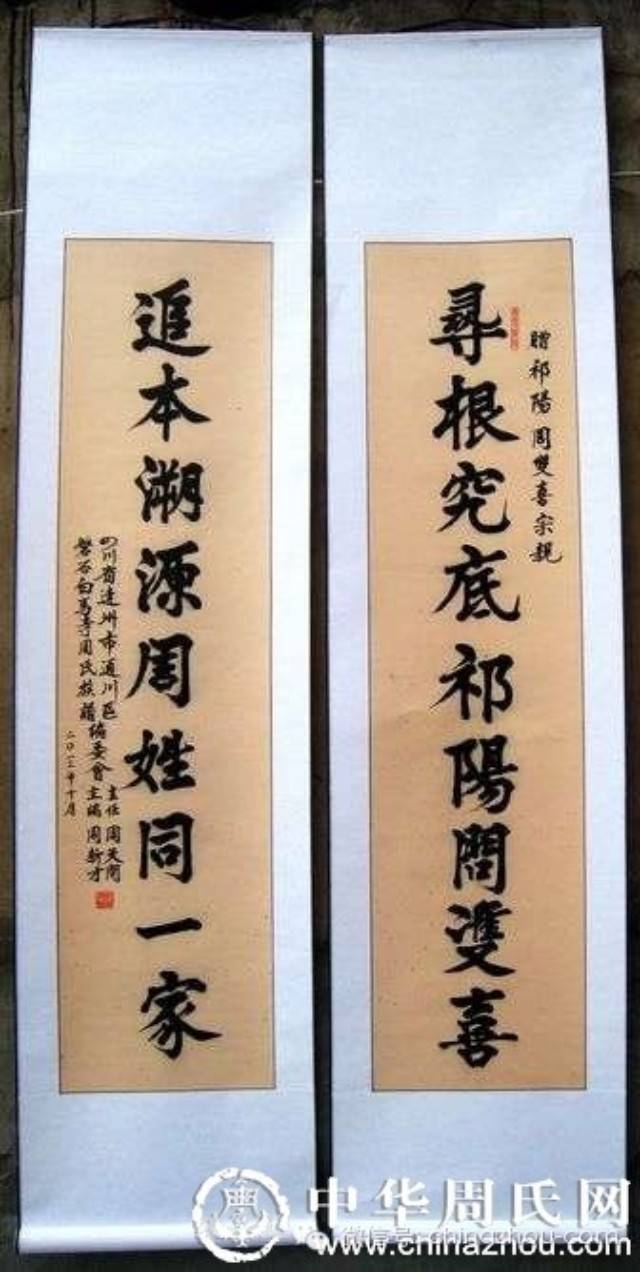 贈祁陽周雙喜宗親
尋根究底祁陽問雙喜
追本溯源周姓同一家
四川省達州市通川區
磐石白馬寺周氏族譜編委會主任周天閣
主編周新才
二〇一三年十月
中华周氏网
微信号:
www.chinazhou.com